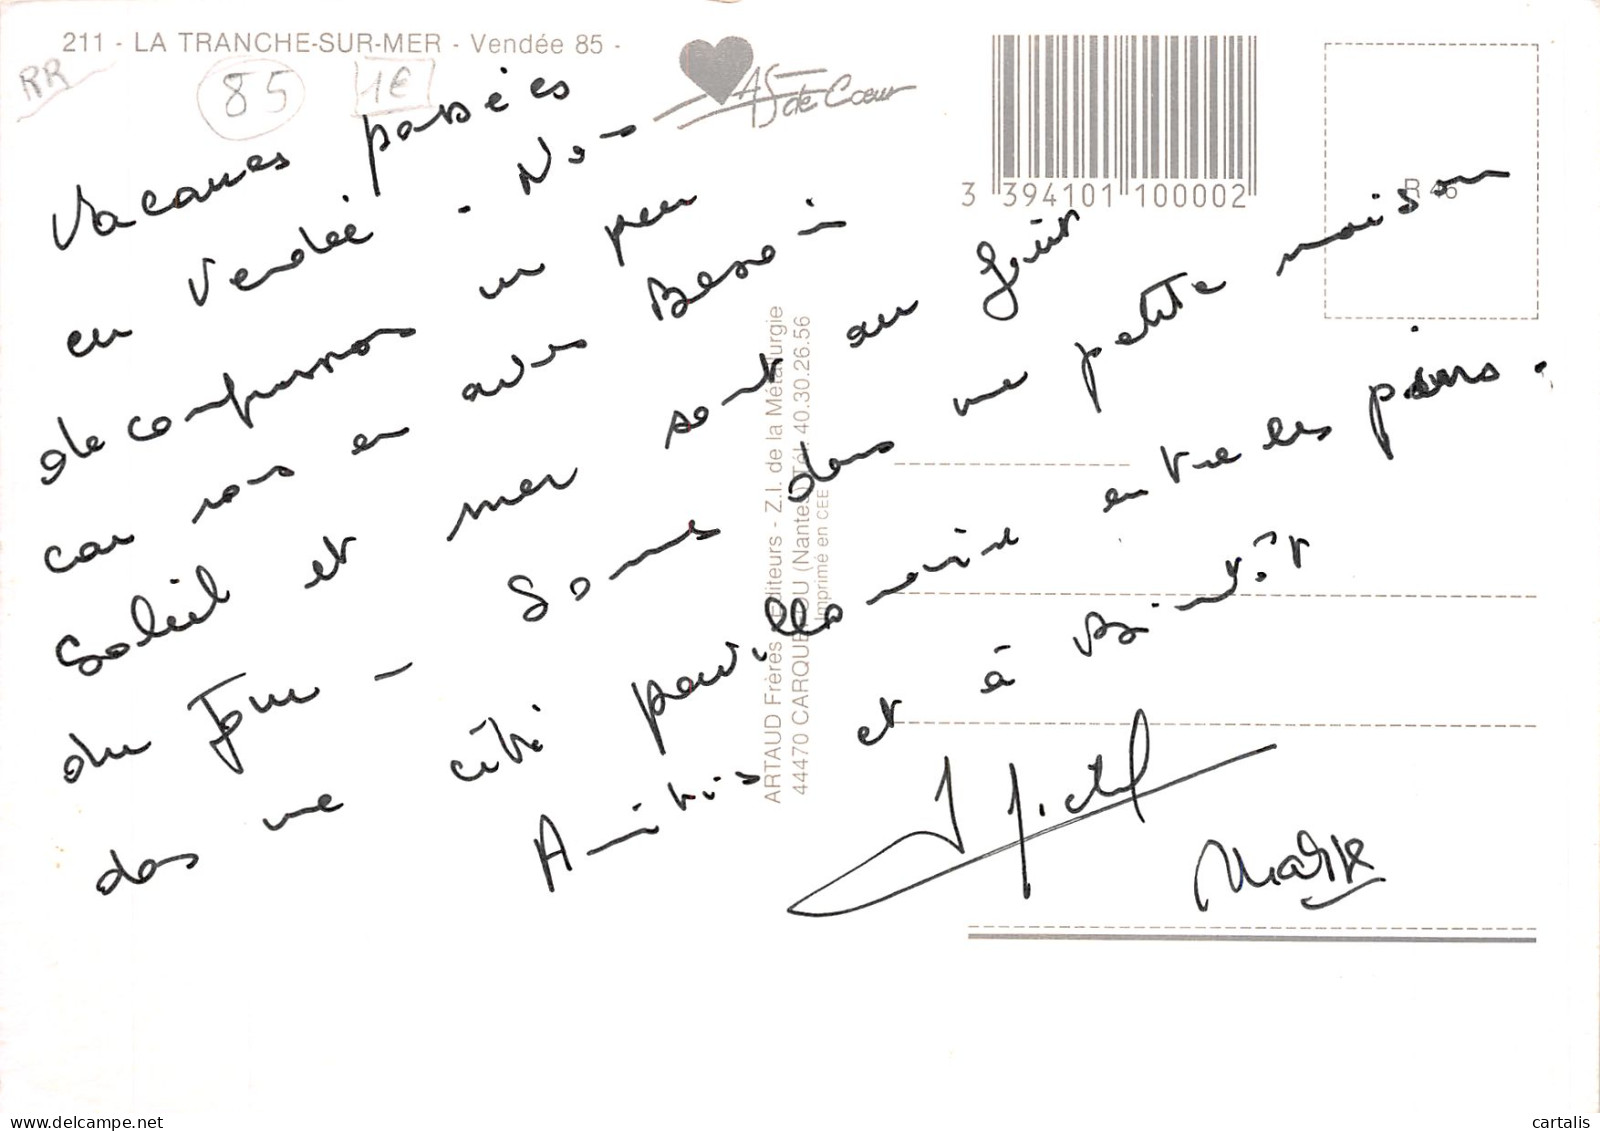 211 - LA TRANCHE-SUR-MER - Vendée 85 -
RR
85
1€
AS de Cœur
3 394101 100002
R 46
Vacances passées
en Vendée - Nous
decompressons un peu
car nous en avons Besoin
Soleil et mer sont au goût
du Jour - Sommes dans une petite maison
dans une cité pavillonaire entre les pins.
Amitiés et à Bientôt
Michel
ARTAUD Frères Editeurs - Z.I. de la Métallurgie
44470 CARQUEFOU (Nantes) Tél. 40.30.26.56
Imprimé en CEE
cartalis
delcampe.net